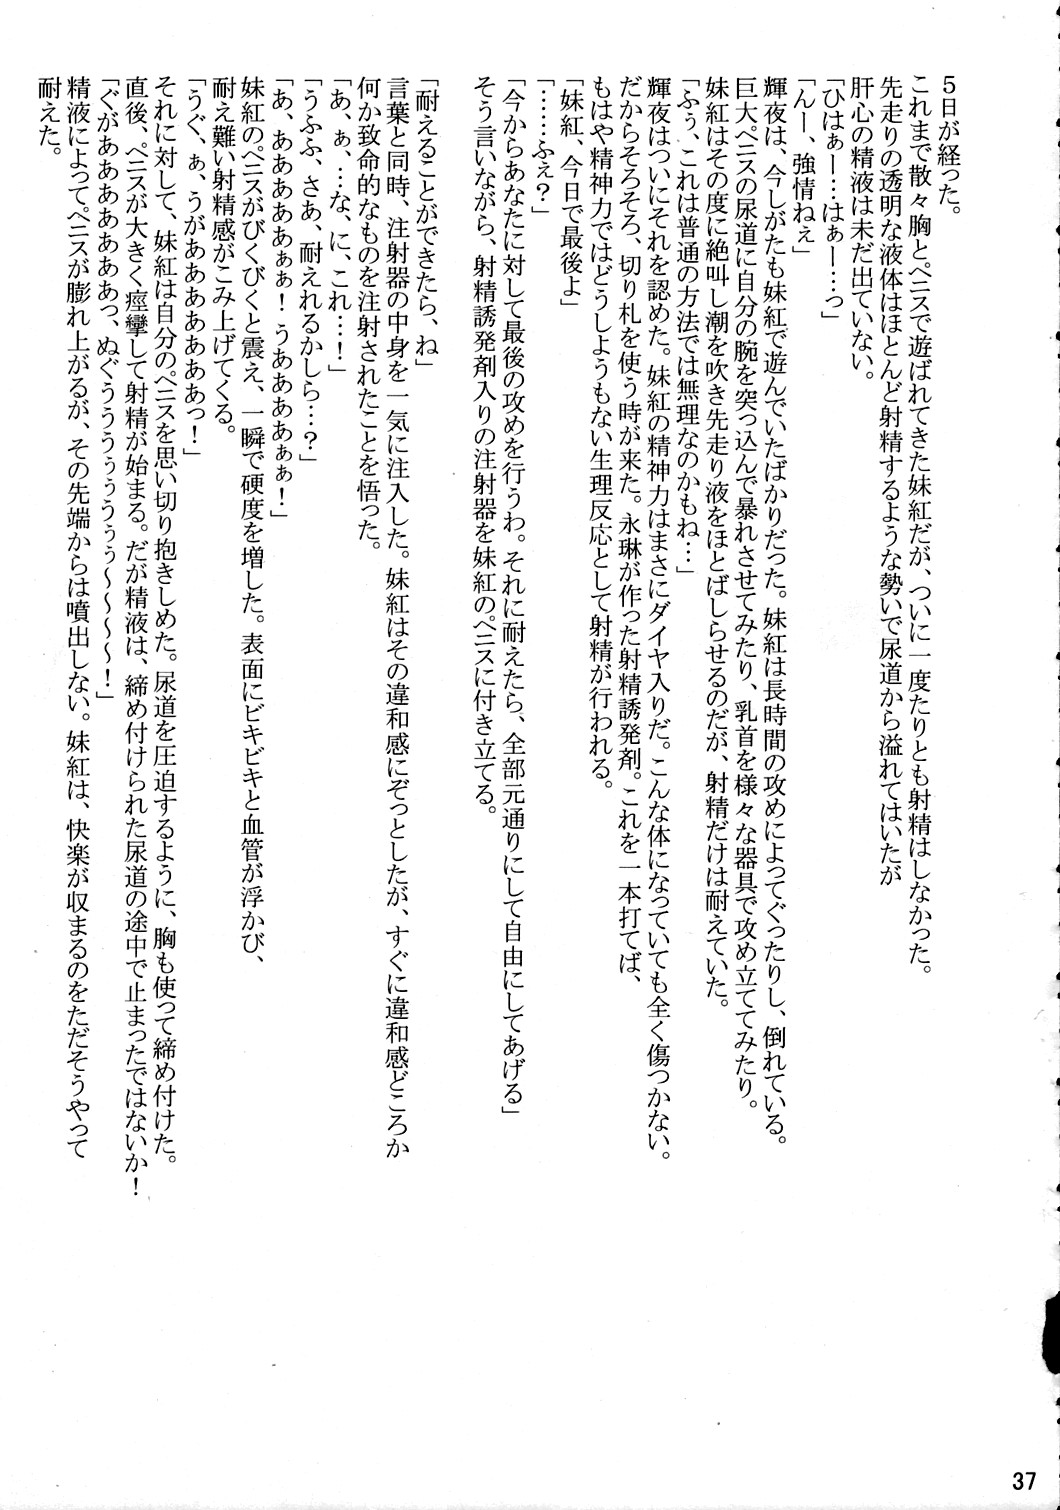 ５日が経った。
これまで散々胸とペニスで遊ばれてきた妹紅だが、ついに一度たりとも射精はしなかった。
先走りの透明な液体はほとんど射精するような勢いで尿道から溢れてはいたが
肝心の精液は未だ出ていない。
「ひはぁー…はぁー…っ」
「んー、強情ねぇ」
輝夜は、今しがたも妹紅で遊んでいたばかりだった。妹紅は長時間の攻めによってぐったりし、倒れている。
巨大ペニスの尿道に自分の腕を突っ込んで暴れさせてみたり、乳首を様々な器具で攻め立ててみたり。
妹紅はその度に絶叫し潮を吹き先走り液をほとばしらせるのだが、射精だけは耐えていた。
「ふぅ、これは普通の方法では無理なのかもね…」
輝夜はついにそれを認めた。妹紅の精神力はまさにダイヤ入りだ。こんな体になっていても全く傷つかない。
だからそろそろ、切り札を使う時が来た。永琳が作った射精誘発剤。これを一本打てば、
もはや精神力ではどうしようもない生理反応として射精が行われる。
「妹紅、今日で最後よ」
「……ふぇ？」
「今からあなたに対して最後の攻めを行うわ。それに耐えたら、全部元通りにして自由にしてあげる」
そう言いながら、射精誘発剤入りの注射器を妹紅のペニスに付き立てる。
「耐えることができたら、ね」
言葉と同時、注射器の中身を一気に注入した。妹紅はその違和感にぞっとしたが、すぐに違和感どころか
何か致命的なものを注射されたことを悟った。
「あ、ぁ、…な、に、これ…！」
「うふふ、さあ、耐えれるかしら…？」
「あ、あああああぁぁ！うああああぁぁ！」
妹紅のペニスがびくびくと震え、一瞬で硬度を増した。表面にビキビキと血管が浮かび、
耐え難い射精感がこみ上げてくる。
「うぐ、ぁ、うがあああああああっ！」
それに対して、妹紅は自分のペニスを思い切り抱きしめた。尿道を圧迫するように、胸も使って締め付けた。
直後、ペニスが大きく痙攣して射精が始まる。だが精液は、締め付けられた尿道の途中で止まったではないか！
「ぐがああああああああっ、ぬぐうううぅぅうぅぅ～～～～！」
精液によってペニスが膨れ上がるが、その先端からは噴出しない。妹紅は、快楽が収まるのをただそうやって
耐えた。
37